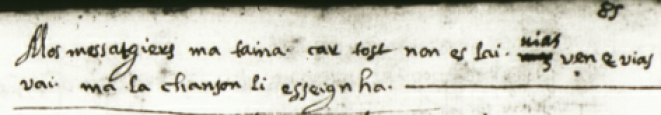 85
Mos messatgiers ma taina. car tost non es lai. vias ven e vias
vai. ma la chanson li esseignha.